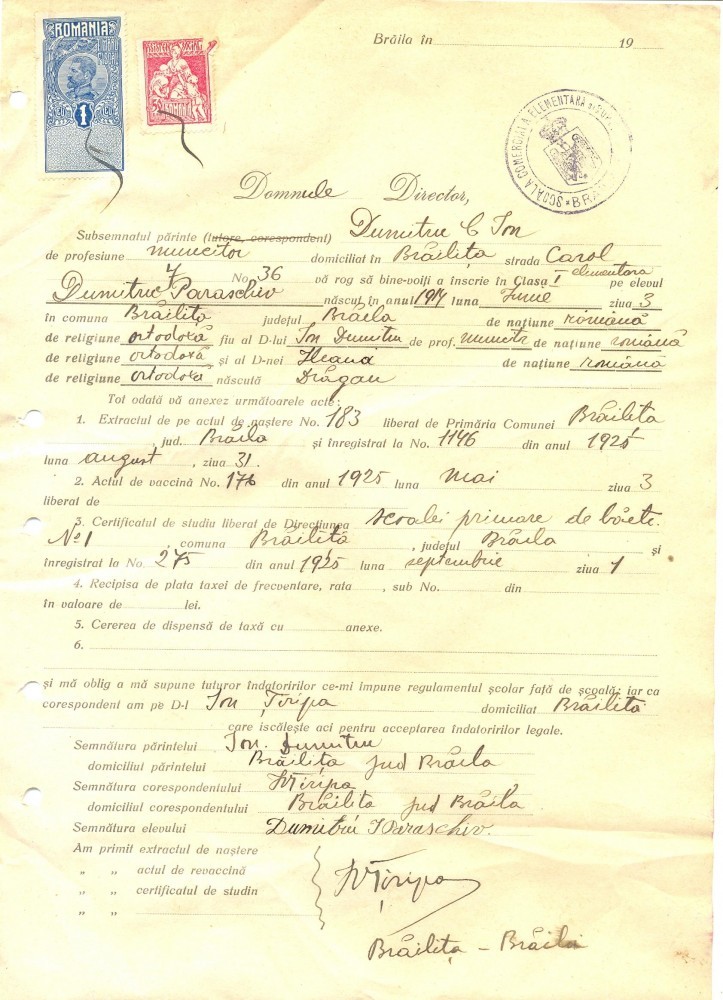 ROMANIA
TIMBRU FISCAL
1
ASISTENTA SOCIALA
50 ROMANIA
Brăila în 19
ȘCOALA COMERCIALA ELEMENTARA
Domnule Director,
Subsemnatul părinte (tutore, corespondent) Dumitru C Ion
de profesiune muncitor domiciliat în Brăilița strada Carol
No. 36 vă rog să bine-voiți a înscrie în Clasa I elementara pe elevul
Dumitru I Paraschiv născut în anul 1914 luna Iunie ziua 3
în comuna Brăilița județul Brăila de națiune română
de religiune ortodoxă fiu al D-lui Ion Dumitru de prof. muncitr de națiune română
de religiune ortodoxă și al D-nei Ileana de națiune română
de religiune ortodoxă născută Drăgan
Tot odată vă anexez următoarele acte:
1. Extractul de pe actul de naștere No. 183 liberat de Primăria Comunei Brăilița
, jud. Braila și înregistrat la No. 1146 din anul 1925
luna august , ziua 31.
2. Actul de vaccină No. 176 din anul 1925 luna Mai ziua 3
liberat de
3. Certificatul de studiu liberat de Direcțiunea scoalei primare de băete
No 1 , comuna Brăilița , județul Brăila și
înregistrat la No. 275 din anul 1925 luna septembrie ziua 1
4. Recipisa de plata taxei de frecventare, rata , sub No. din
în valoare de lei.
5. Cererea de dispensă de taxă cu anexe.
6.
și mă oblig a mă supune tuturor îndatoririlor ce-mi impune regulamentul școlar față de școală; iar ca
corespondent am pe D-l Ion Țiripa domiciliat Brăilița
care iscălește aci pentru acceptarea îndatoririlor legale.
Semnătura părintelui Ion. Dumitru
domiciliul părintelui Brăilița jud Brăila
Semnătura corespondentului Țiripa
domiciliul corespondentului Brăilita jud Brăila
Semnătura elevului Dumitru I Paraschiv.
Am primit extractul de naștere
„ „ actul de revaccină
„ „ certificatul de studin
„ „
Țiripa
Brăilița – Brăila